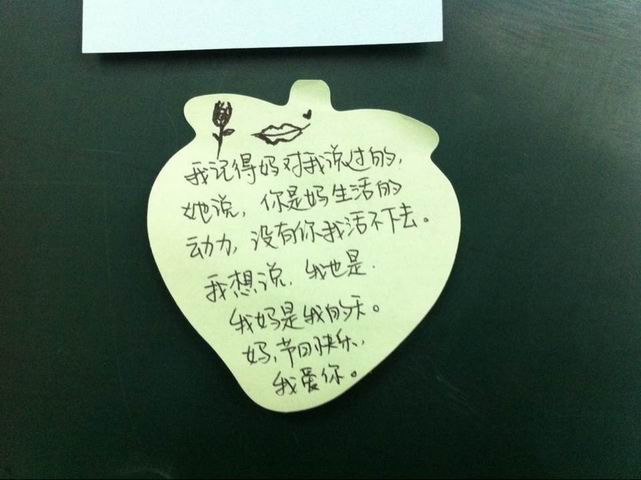 我记得妈对我说过的,
她说,你是妈生活的
动力,没有你我活不下去。
我想说,我也是.
我妈是我的天。
妈,节日快乐,
我爱你。